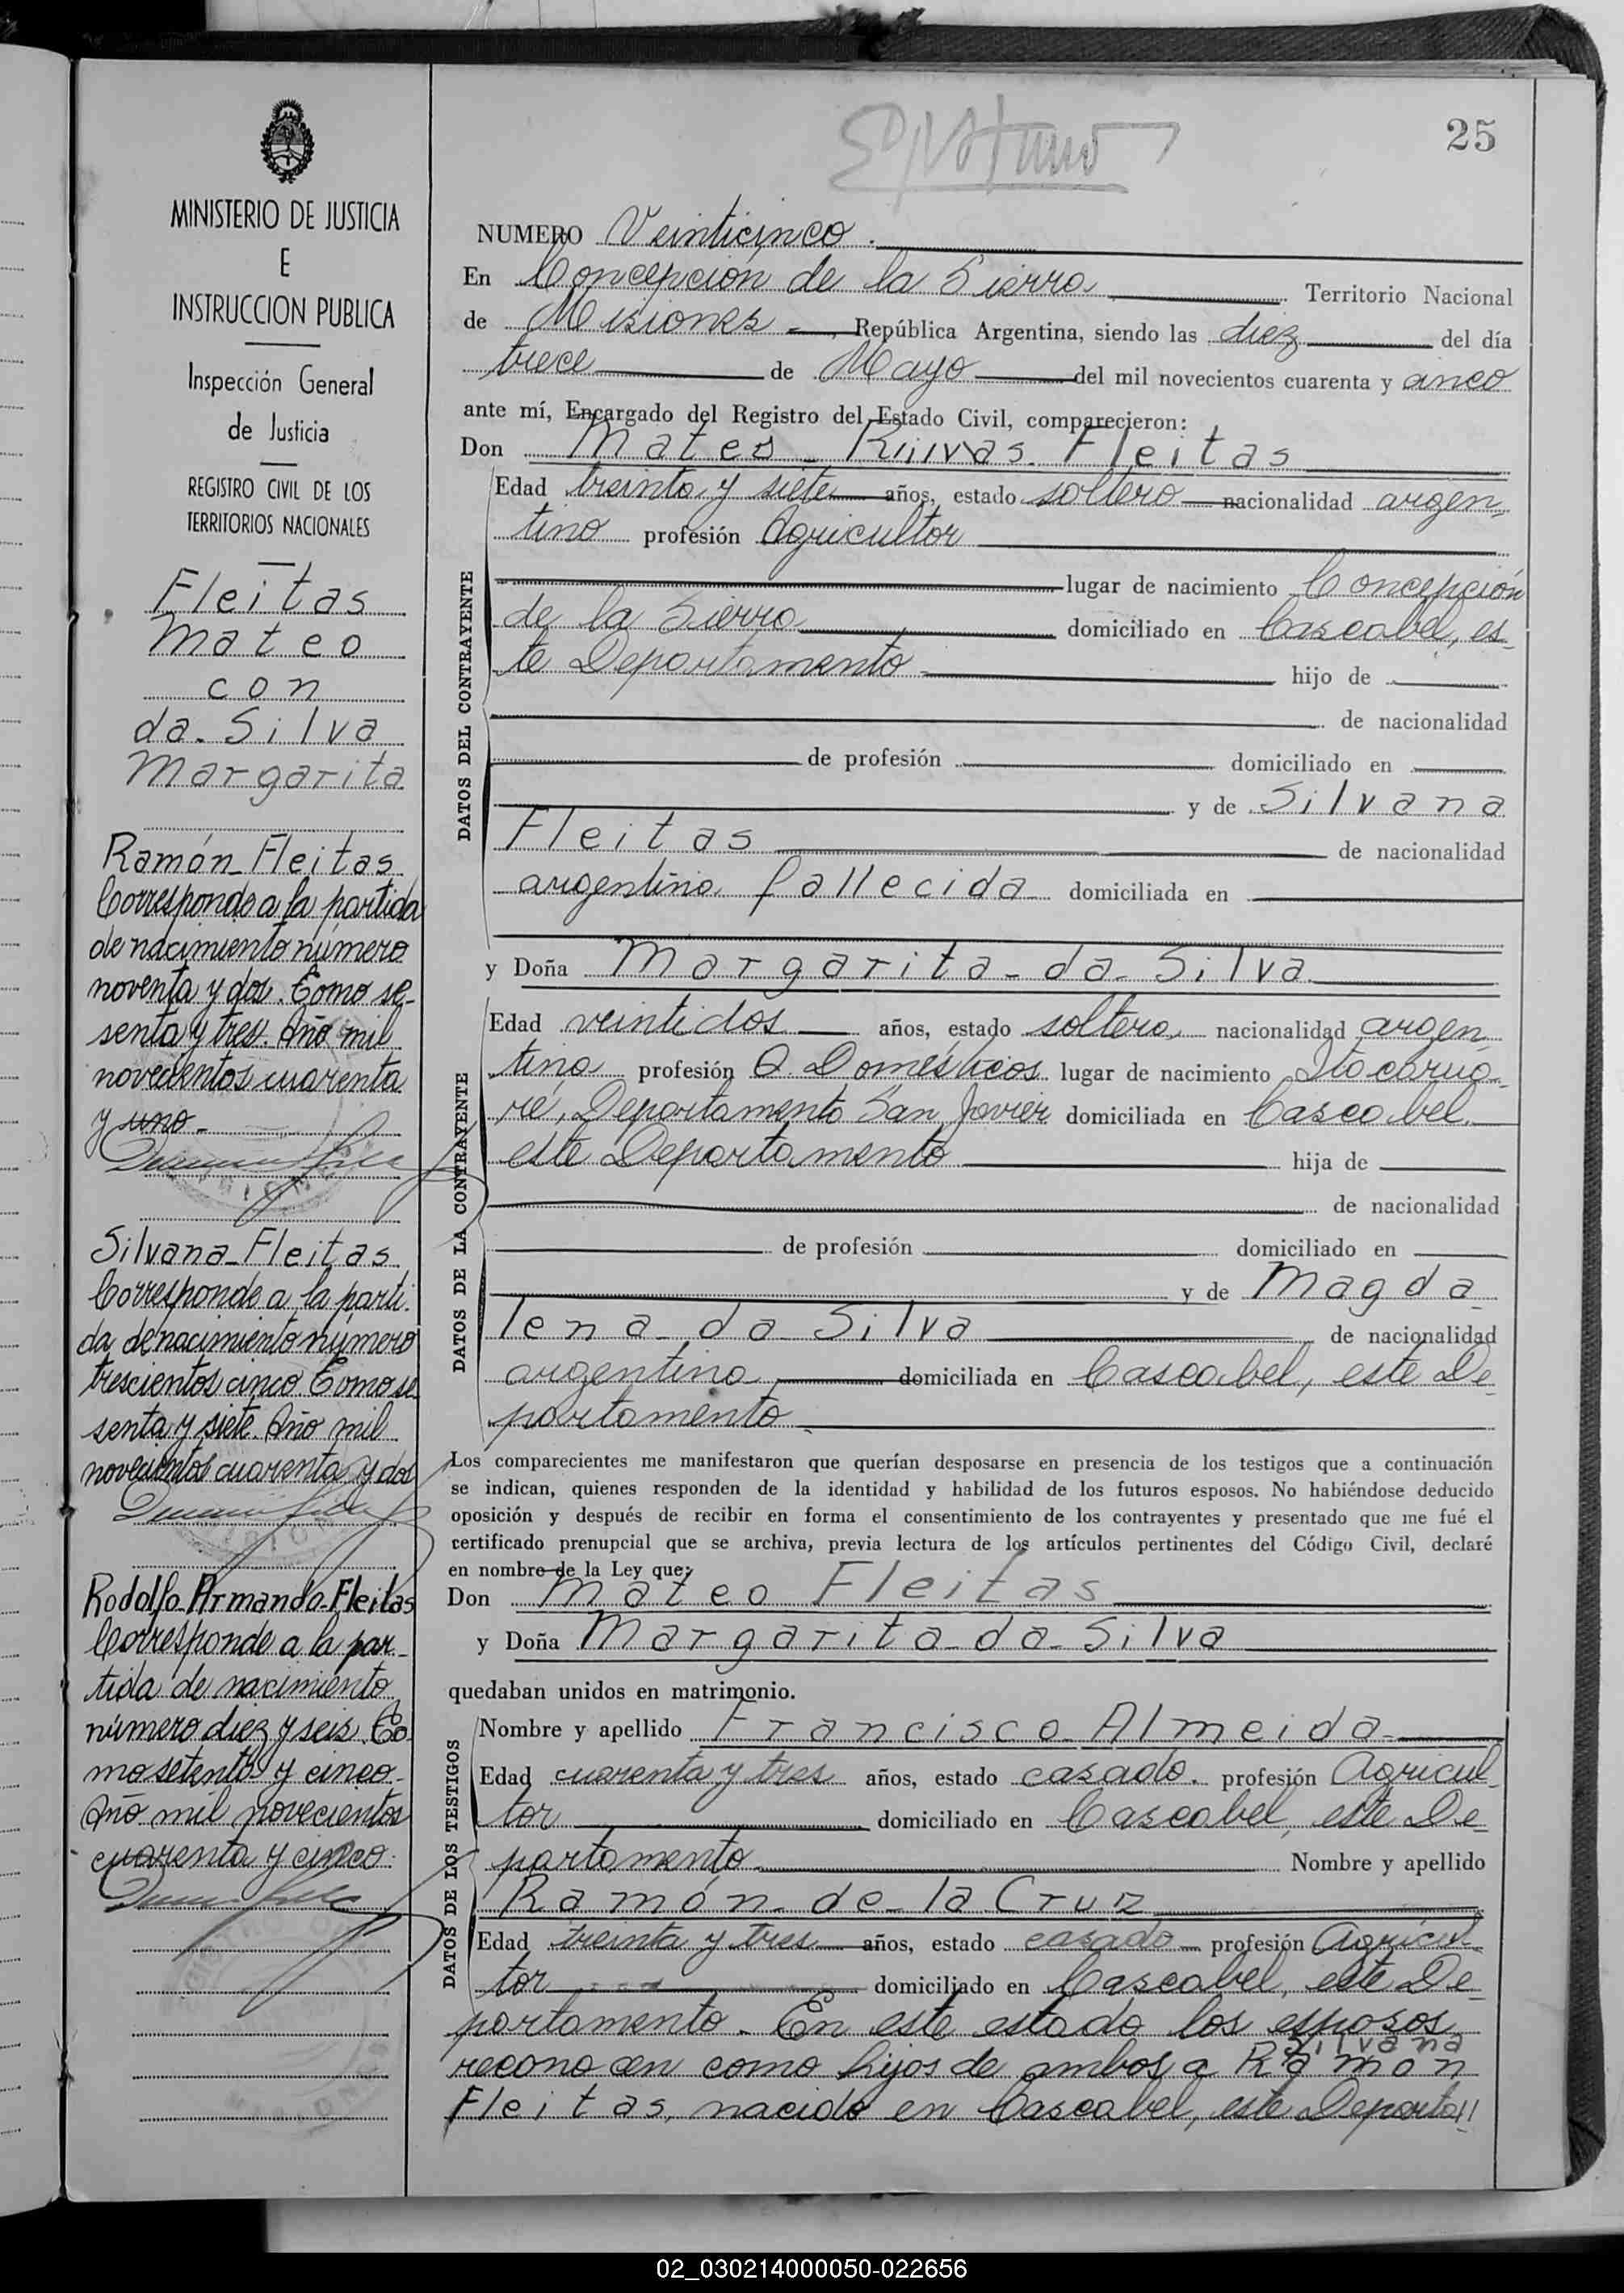 25
MINISTERIO DE JUSTICIA
E
INSTRUCCION PUBLICA
Inspección General
de Justicia
REGISTRO CIVIL DE LOS
TERRITORIOS NACIONALES
Fleitas
Mateo
con
da-Silva
Margarita
Ramón-Fleitas
Corresponde a la partida
de nacimiento número
noventa y dos. Tomo se-
senta y tres. Año mil
novecientos cuarenta
y uno.-
Silvana-Fleitas
Corresponde a la parti-
da de nacimiento número
trescientos cinco Tomo se
senta y siete. Año mil
novecientos cuarenta y dos
Rodolfo-Armando-Fleitas
Corresponde a la par-
tida de nacimiento
número diez y seis. To-
mo setenta y cinco-
Año mil novecientos
cuarenta y cinco.
NUMERO Veinticinco.
En Concepción de la Sierra Territorio Nacional
de Misiones -, República Argentina, siendo las diez del día
trece de Mayo del mil novecientos cuarenta y cinco
ante mí, Encargado del Registro del Estado Civil, comparecieron:
Don Mateo - Fleitas
DATOS DEL CONTRAYENTE
Edad treinta y siete años, estado soltero nacionalidad argen-
tino profesión Agricultor
lugar de nacimiento Concepción
de la Sierra domiciliado en Cascabel, es-
te Departamento hijo de
de nacionalidad
de profesión domiciliado en
y de Silvana
Fleitas de nacionalidad
argentina fallecida domiciliada en
y Doña Margarita-da-Silva
DATOS DE LA CONTRAYENTE
Edad veintidos años, estado soltera, nacionalidad argen-
tina profesión Q. Domésticos lugar de nacimiento Itacarua-
ré, Departamento San Javier domiciliada en Cascabel
este Departamento hija de
de nacionalidad
de profesión domiciliado en
y de Magda-
lena-da-Silva de nacionalidad
argentina domiciliada en Cascabel, este De-
partamento
Los comparecientes me manifestaron que querían desposarse en presencia de los testigos que a continuación
se indican, quienes responden de la identidad y habilidad de los futuros esposos. No habiéndose deducido
oposición y después de recibir en forma el consentimiento de los contrayentes y presentado que me fué el
certificado prenupcial que se archiva, previa lectura de los artículos pertinentes del Código Civil, declaré
en nombre de la Ley que:
Don Mateo Fleitas
y Doña Margarita-da-Silva
quedaban unidos en matrimonio.
DATOS DE LOS TESTIGOS
Nombre y apellido Francisco-Almeida-
Edad cuarenta y tres años, estado casado. profesión Agricul-
tor domiciliado en Cascabel, este De-
partamento Nombre y apellido
Ramón-de-la Cruz
Edad treinta y tres años, estado casado profesión Agricul-
tor domiciliado en Cascabel, este De-
partamento. En este estado los esposos
Silvana
reconocen como hijos de ambos a Ramón
Fleitas, nacido en Cascabel, este Departa//
02_030214000050-022656